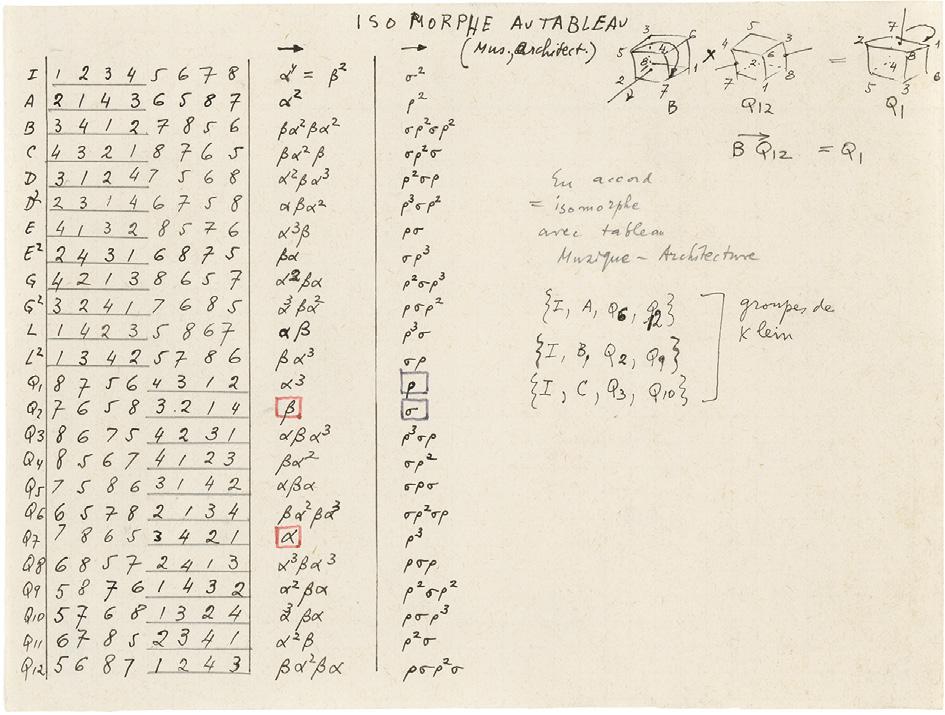 ISOMORPHE AU TABLEAU
(Mus, architect.)
I 1 2 3 4 5 6 7 8 α⁴ = β² σ²
A 2 1 4 3 6 5 8 7 α² ρ²
B 3 4 1 2 7 8 5 6 βα²βα² σρ²σρ²
C 4 3 2 1 8 7 6 5 βα²β σρ²σ
D 3 1 2 4 7 5 6 8 α²βα³ ρ²σρ
D² 2 3 1 4 6 7 5 8 αβα² ρ³σρ²
E 4 1 3 2 8 5 7 6 α³β ρσ
E² 2 4 3 1 6 8 7 5 βα σρ³
G 4 2 1 3 8 6 5 7 α²βα ρ²σρ³
G² 3 2 4 1 7 6 8 5 α³βα² ρσρ²
L 1 4 2 3 5 8 6 7 αβ ρ³σ
L² 1 3 4 2 5 7 8 6 βα³ σρ
Q1 8 7 5 6 4 3 1 2 α³ ρ
Q2 7 6 5 8 3 2 1 4 β σ
Q3 8 6 7 5 4 2 3 1 αβα³ ρ³σρ
Q4 8 5 6 7 4 1 2 3 βα² σρ²
Q5 7 5 8 6 3 1 4 2 αβα σρσ
Q6 6 5 7 8 2 1 3 4 βα²βα³ σρ²σρ
Q7 7 8 6 5 3 4 2 1 α ρ³
Q8 6 8 5 7 2 4 1 3 α³βα³ ρσρ
Q9 5 8 7 6 1 4 3 2 α²βα ρ²σρ²
Q10 5 7 6 8 1 3 2 4 α³βα ρσρ³
Q11 6 7 8 5 2 3 4 1 α²β ρ²σ
Q12 5 6 8 7 1 2 4 3 βα²βα ρσρ²σ
5 3 4 6 8 2 7 1 B
×
5 4 3 2 6 7 1 8 Q12
=
7 2 1 8 4 5 3 6 Q1
B Q12 = Q1
En accord
= isomorphe
avec tableau
Musique – Architecture
{I, A, Q6, Q12}
{I, B, Q2, Q9}
{I, C, Q3, Q10}
groupes de
Klein